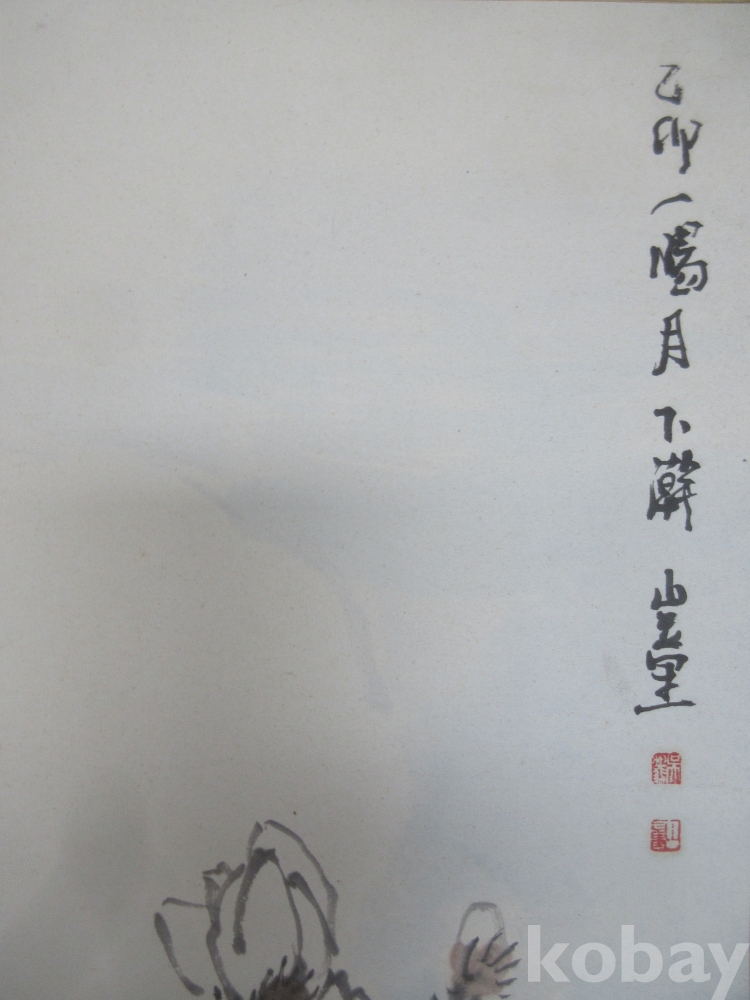 乙卯一陽月下澣 山堂
kobay